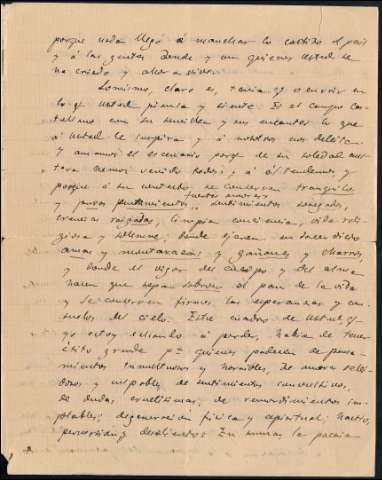 porque nada llegó á manchar lo castizo del país
y á las gentes donde y con quienes usted se
ha criado y ahora vive.
Lo mismo, claro es, tenía q. ocurrir en
lo q. usted piensa y siente. Es el campo cas-
tellano con su sencillez y sus encantos lo que
á usted le inspira y á nosotros nos deleita.
Y amamos el escenario porq. de su soledad aus-
tera hemos venido todos, y á él tendemos, y
porque á su contacto se conservan tranquilos
y puros fuertes amores, sentimientos sosegados,
creencias raigadas, limpia conciencia, vida reli-
giosa y ; donde ejercen su sacerdocio
amos y montaraces, y gañanes y charros
y donde el vigor del cuerpo y del alma
hacen que sepa sabroso el pan de la vida
y se conserven firmes las esperanzas y con-
suelos del cielo. Este cuadro de usted, q.
yo estoy echando á perder, había de tener
éxito grande pª quienes padecen de pensa-
mientos tumultuosos y horribles, de amores
y culpables, de sentimientos convulsivos,
de dudas cruelísimas, de remordimientos im-
placables; degeneración física y espiritual; hastío,
perversión y desaliento. En suma la poesía